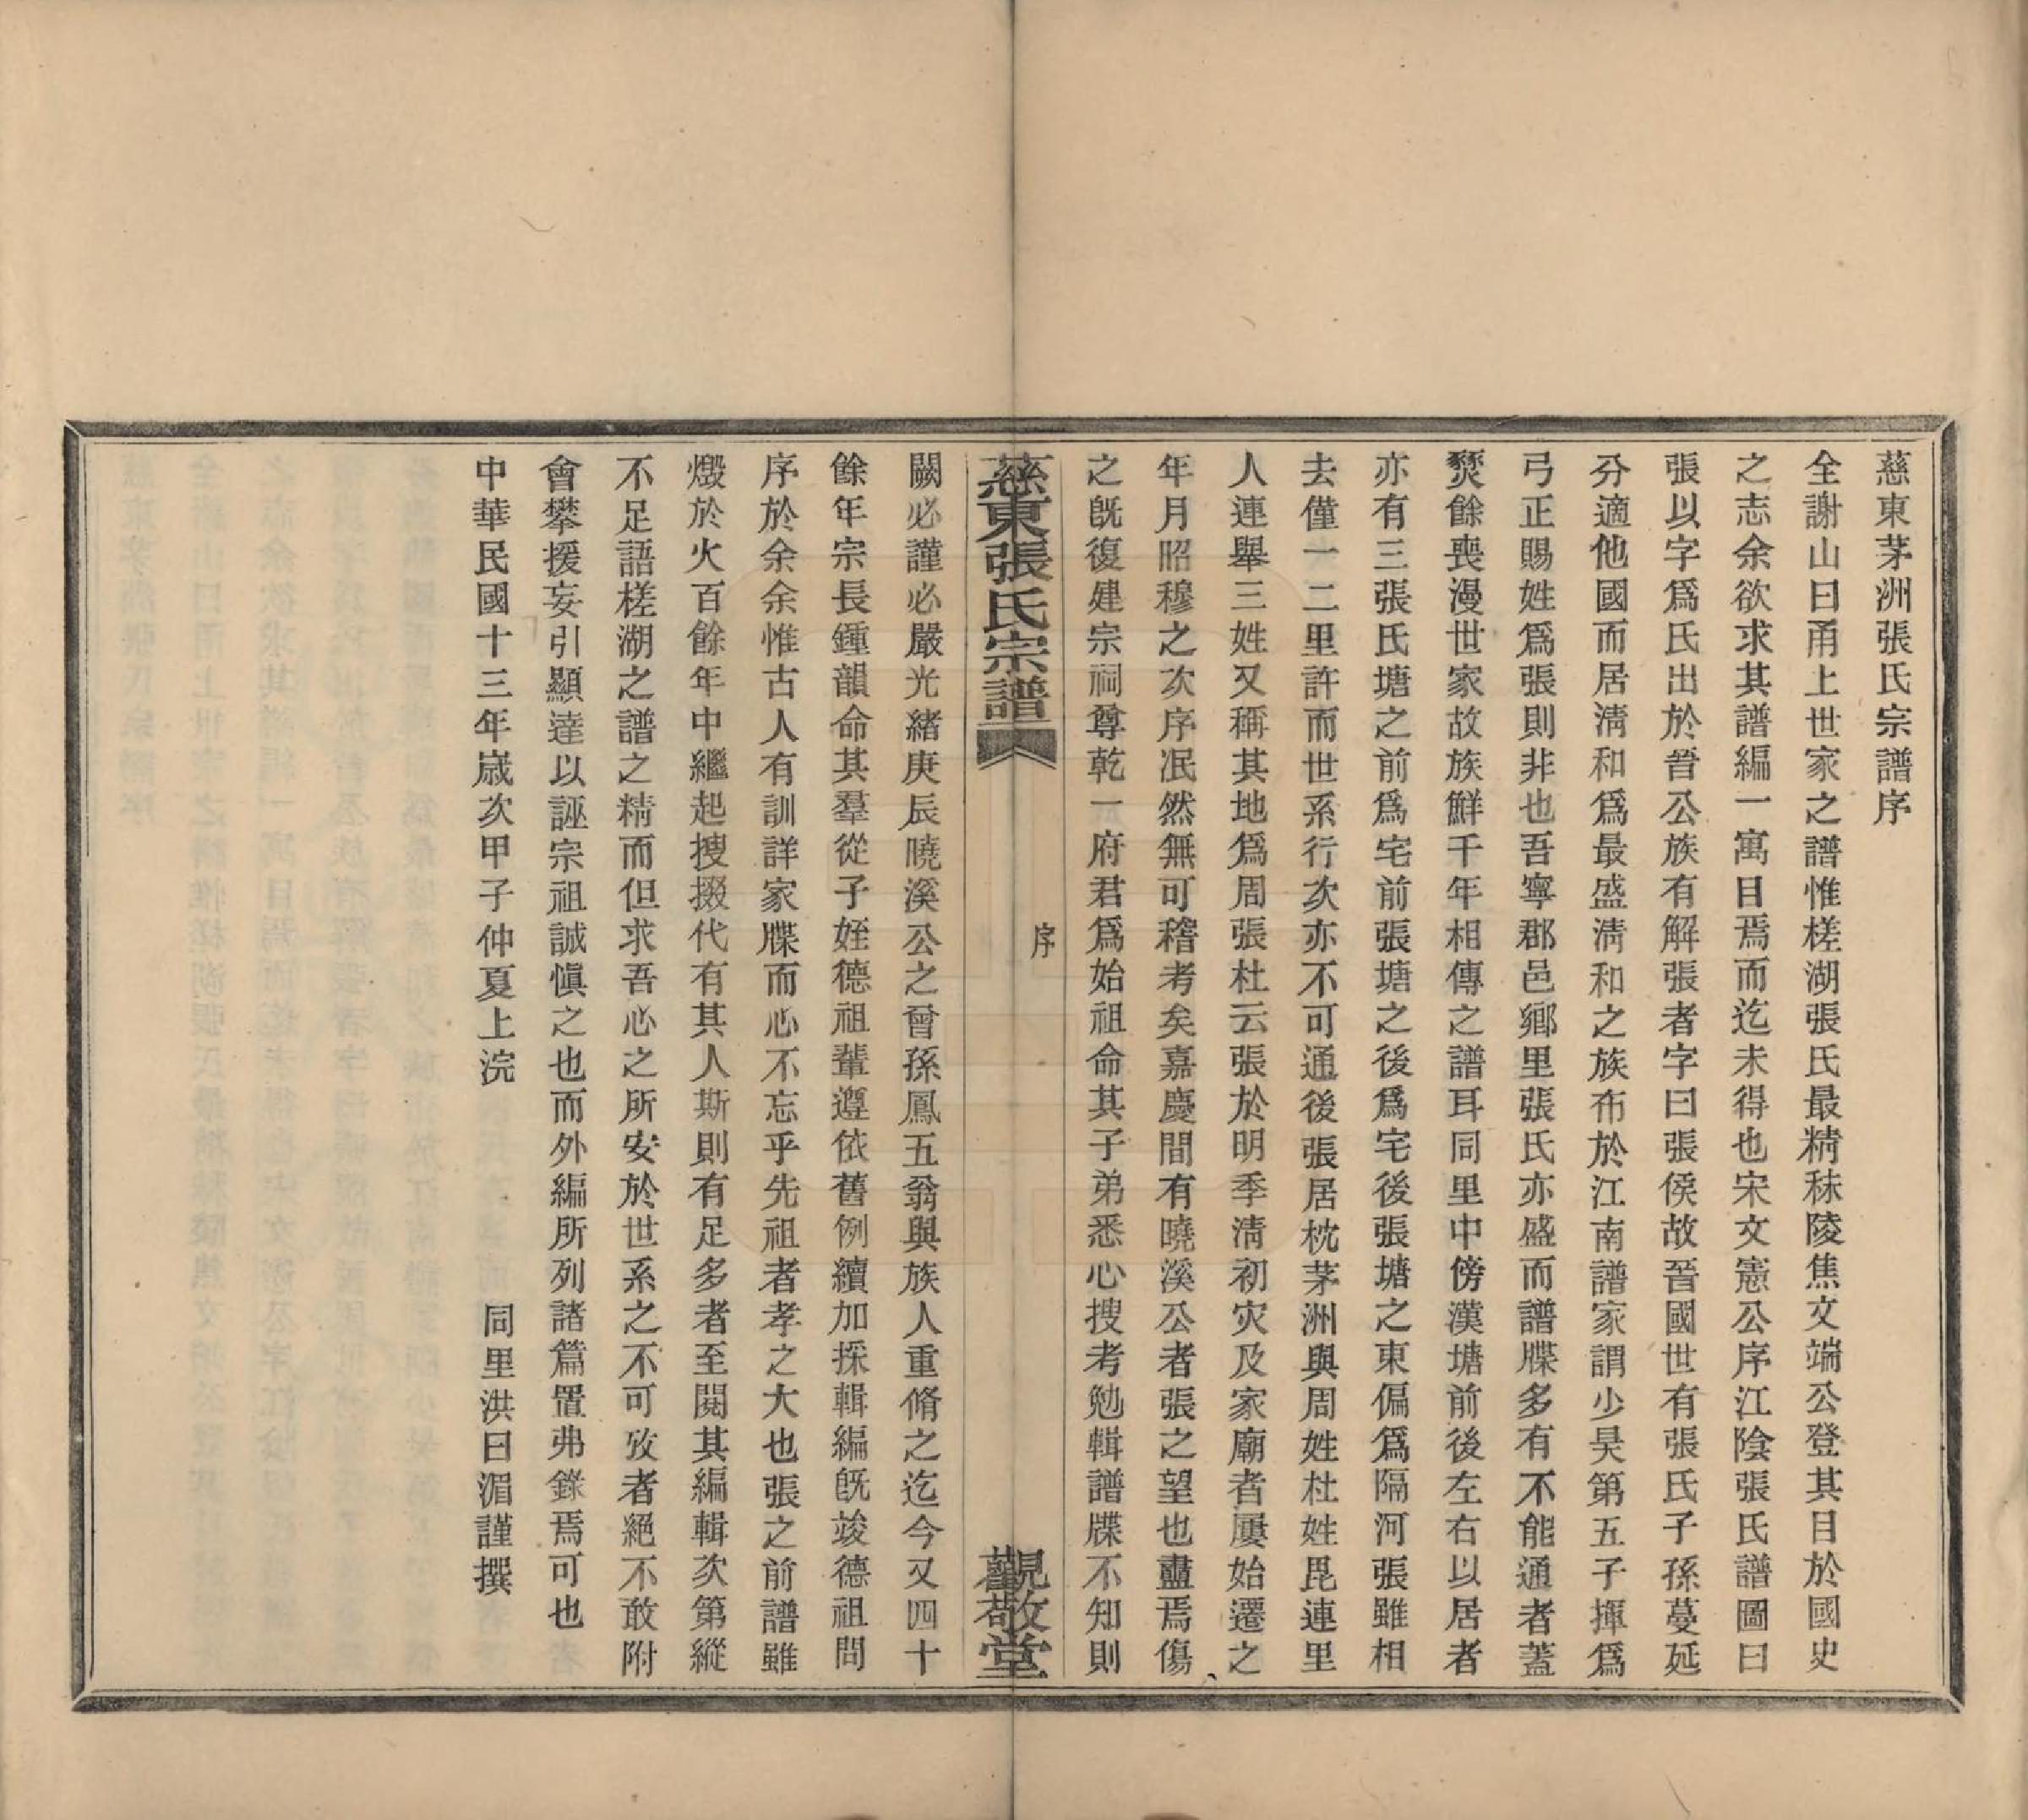 慈東茅洲張氏宗譜序
全謝山曰甬上世家之譜惟槎湖張氏最精秣陵焦文端公登其目於國史
之志余欲求其譜編一寓目焉而迄未得也宋文憲公序江陰張氏譜圖曰
張以字爲氏出於晉公族有解張者字曰張侯故晉國世有張氏子孫蔓延
分適他國而居淸和爲最盛淸和之族布於江南譜家謂少昊第五子揮爲
弓正賜姓爲張則非也吾寧郡邑鄉里張氏亦盛而譜牒多有不能通者蓋
燹餘喪漫世家故族鮮千年相傳之譜耳同里中傍漢塘前後左右以居者
亦有三張氏塘之前爲宅前張塘之後爲宅後張塘之東偏爲隔河張雖相
去僅一二里許而世系行次亦不可通後張居枕茅洲與周姓杜姓毘連里
人連舉三姓又稱其地爲周張杜云張於明季淸初灾及家廟者屢始遷之
年月昭穆之次序泯然無可稽考矣嘉慶間有曉溪公者張之望也衋焉傷
之旣復建宗祠尊乾一府君爲始祖命其子弟悉心搜考勉輯譜牒不知則
慈東張氏宗譜
序
觀敬堂
闕必謹必嚴光緒庚辰曉溪公之曾孫鳳五翁與族人重脩之迄今又四十
餘年宗長鍾韻命其羣從子姪德祖輩遵依舊例續加採輯編旣竣德祖問
序於余余惟古人有訓詳家牒而心不忘乎先祖者孝之大也張之前譜雖
燬於火百餘年中繼起搜掇代有其人斯則有足多者至閱其編輯次第縱
不足語槎湖之譜之精而但求吾心之所安於世系之不可攷者絕不敢附
會攀援妄引顯達以誣宗祖誠愼之也而外編所列諸篇置弗錄焉可也
中華民國十三年歲次甲子仲夏上浣　同里洪曰湄謹撰